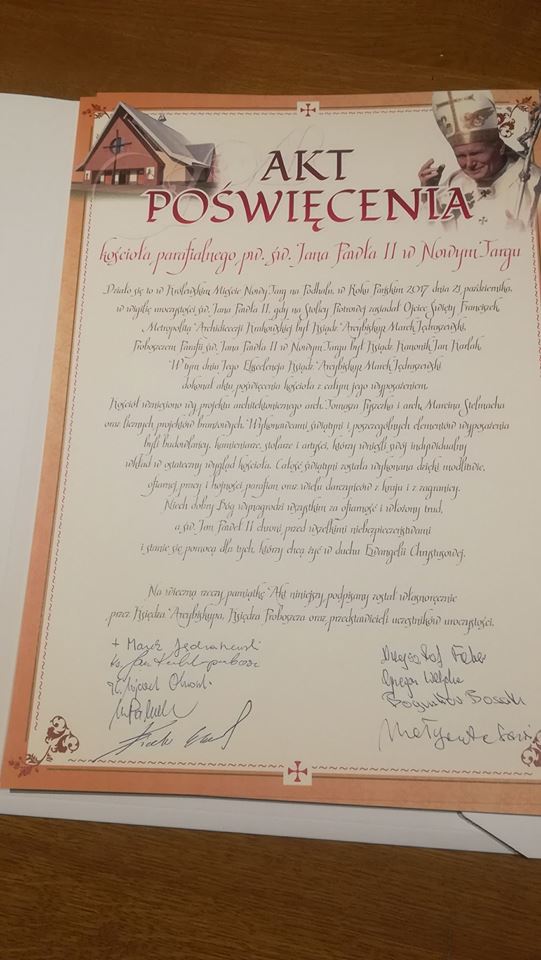 AKT
POŚWIĘCENIA
kościoła parafialnego pw. św. Jana Pawła II w Nowym Targu
Działo się to w Królewskim Mieście Nowy Targ na Podhalu, w Roku Pańskim 2017 dnia 21 października,
w wigilię uroczystości św. Jana Pawła II, gdy na Stolicy Piotrowej zasiadał Ojciec Święty Franciszek,
Metropolitą Archidiecezji Krakowskiej był Ksiądz Arcybiskup Marek Jędraszewski,
Proboszczem Parafii św. Jana Pawła II w Nowym Targu był Ksiądz Kanonik Jan Karlak.
W tym dniu Jego Ekscelencja Ksiądz Arcybiskup Marek Jędraszewski
dokonał aktu poświęcenia kościoła z całym jego wyposażeniem.
Kościół wzniesiono wg projektu architektonicznego arch. Tomasza Pyszczka i arch. Marcina Stelmacha
oraz licznych projektów branżowych. Wykonawcami świątyni i poszczególnych elementów wyposażenia
byli budowlańcy, kamieniarze, stolarze i artyści, którzy wnieśli swój indywidualny
wkład w ostateczny wygląd kościoła. Całość świątyni została wykonana dzięki modlitwie,
ofiarnej pracy i hojności parafian oraz wielu darczyńców z kraju i z zagranicy.
Niech dobry Bóg wynagrodzi wszystkim za ofiarność i włożony trud,
a św. Jan Paweł II chroni przed wszelkimi niebezpieczeństwami
i stanie się pomocą dla tych, którzy chcą żyć w duchu Ewangelii Chrystusowej.
Na wieczną rzeczy pamiątkę Akt niniejszy podpisany został własnoręcznie
przez Księdza Arcybiskupa, Księdza Proboszcza oraz przedstawicieli uczestników uroczystości.
+ Marek Jędraszewski
ks. Jan